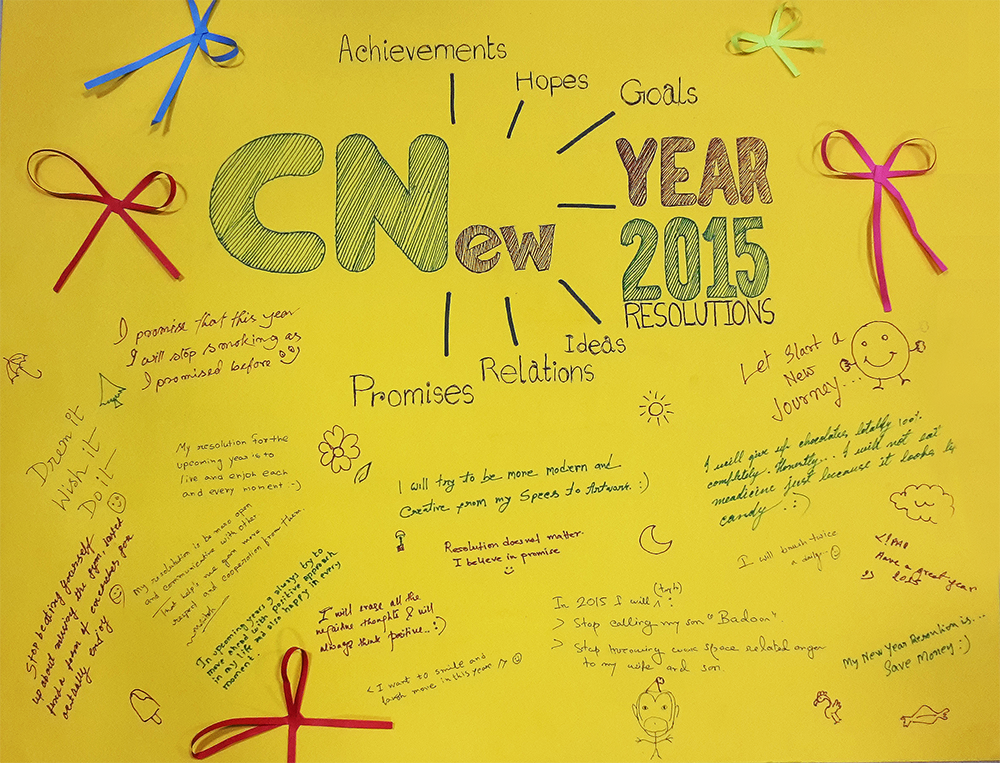 Achievements
Hopes
Goals
CNew
YEAR
2015
RESOLUTIONS
Ideas
Relations
Promises
I promise that this year
I will stop smoking as
I promised before
Let start a
New
Journey...
Drem it
Wish it
Do it
My resolution for the
upcoming year is to
live and enjoy each
and every moment :-)
I will try to be more modern and
Creative from my Specs to Artwork. :)
I will give up chocolates, totally 100%
completely. Honestly... I will not eat
meadicine just because it looks like
candy :)
My resolution is be more open
and communicative with other
That help's me gain more
respect and cooperation from them.
Resolution does not matter
I believe in promise
I will brush twice
a day
Have a great year
2015
Stop beating yourself
up about missing the gym, instead
find a form of exercises you
actually enjoy
In upcoming years I always try to
move ahead with positive approach
in my life and also happy in every
moment.
I will erase all the
negative thoughts & will
always think positive... :)
In 2015 I will (try) :
> Stop calling my son "Badoon".
> Stop borrowing work space related anger
to my wife and son.
< I want to smile and
laugh more in this year !?
My New Year Resolution is...
Save Money :)